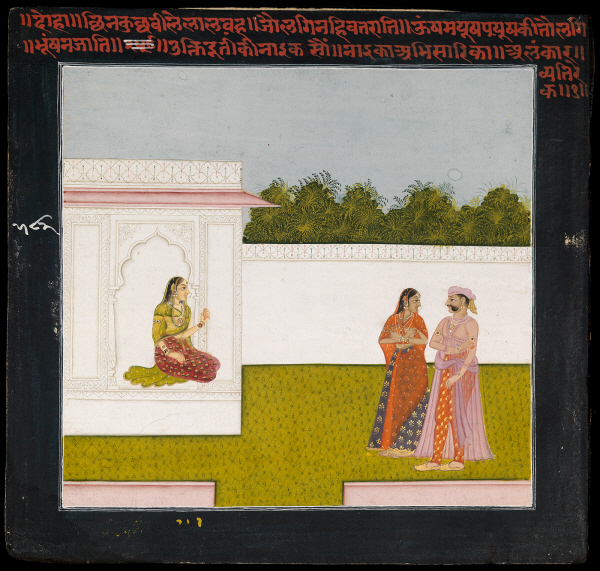 ॥दोहा॥छिनक छबीले लाल वह॥जौ लगि नहि बतराति॥ऊंष मयूष पयूष की तौ लगि
भूंष न जाति॥उक्ति दूती की नाइक सौं॥नाइका अभिसारिका॥अलंकार॥
व्यतिरे
क॥१॥